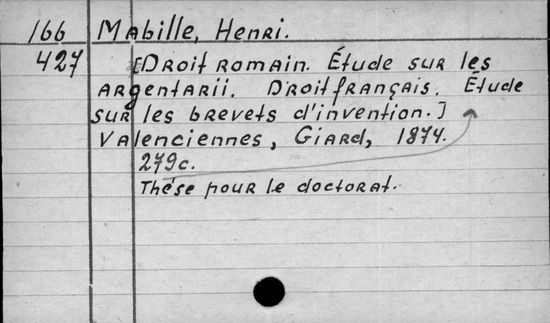 166 Mabille, Henri.
427 [Droit romain. Étude sur les
argentarii. Droit français. Étude
sur les brevets d'invention.]
Valenciennes, Giard, 1874.
279c.
Thése pour le doctorat.